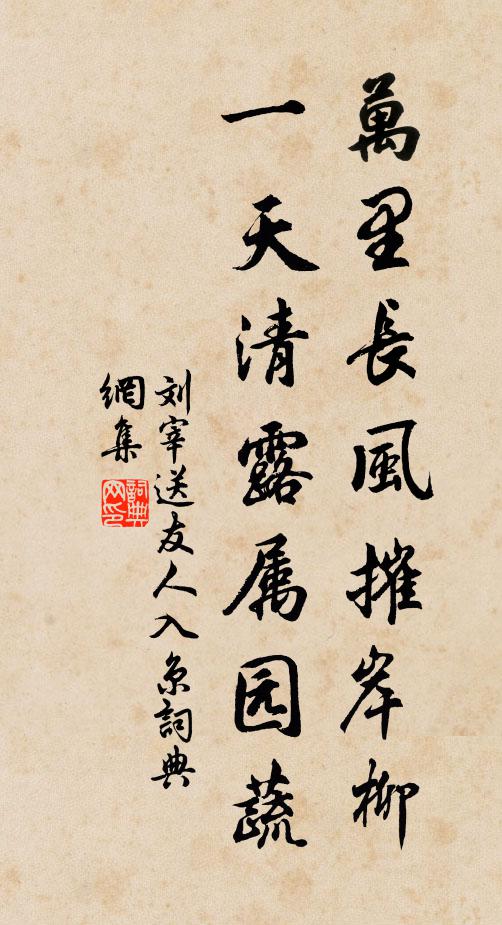 萬里長風摧岸柳
一天清露属园蔬
刘宰送友人入京詞典
網集
詞典
网印